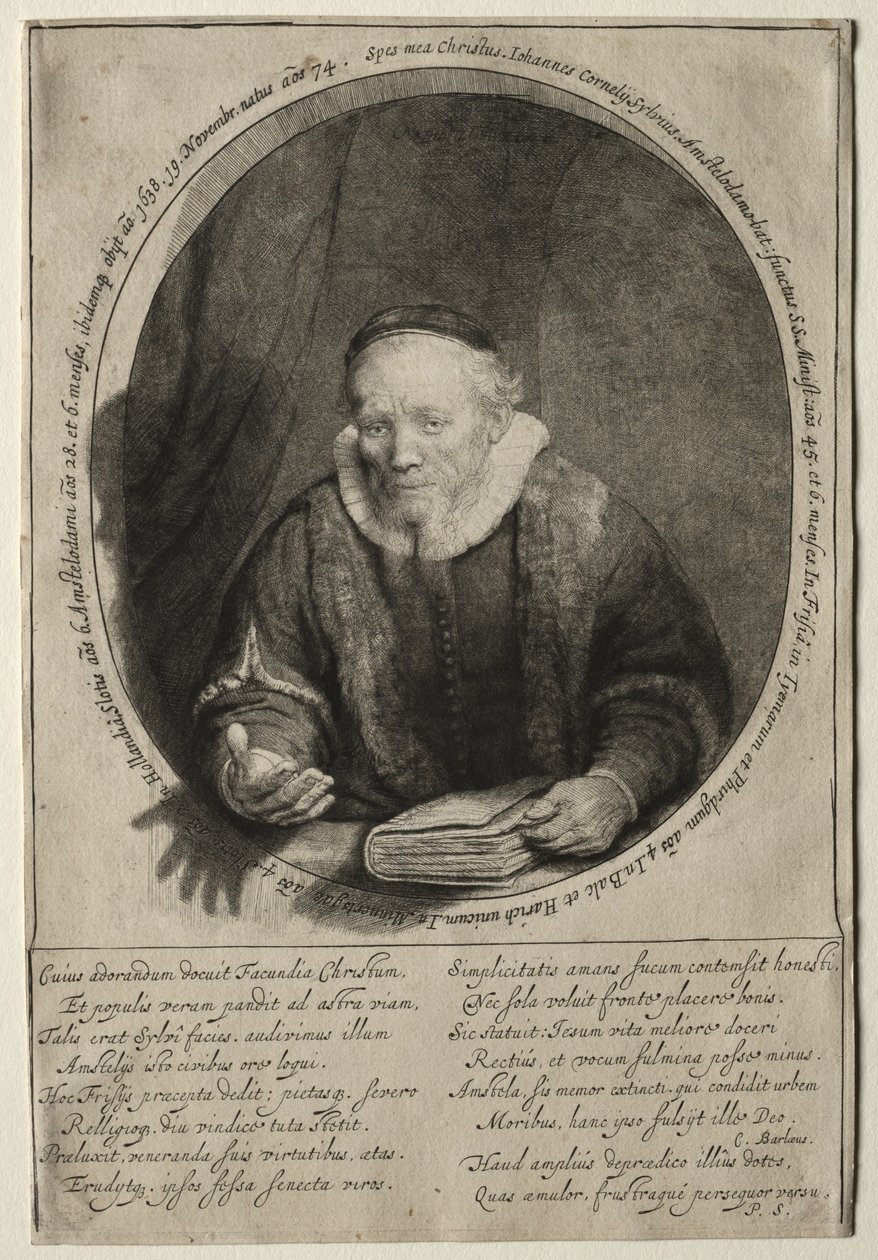 Spes mea Christus. Iohannes Cornelÿ Sylvius. Amstelodamo-bat: functus S.S. Minist: aos̄ 45. et 6. menses. In Frisiâ in Tyenarum et Phirdgum aos̄ 4 In Balc et Harich unicum. In Minnertsgae aos̄ 4. In Hollandiâ, Slotis aos̄ 6. Amstelodami aos̄ 28. et 6. menses, ibidemqꝫ obijt ao̅. 1638. 19. Novembr. natus aos̄ 74.
Cuius adorandum docuit Facundia Christum,
Et populis veram pandit ad astra viam,
Talis erat Sylvî facies. audivimus illum
Amstelÿs isto civibus ore loqui.
Hoc Frisÿs præcepta dedit; pietasqꝫ. severo
Relligioqꝫ. diu vindice tuta stetit.
Præluxit, veneranda suis virtutibus, ætas.
Erudÿtqꝫ. ipsos fessa senecta viros.
Simplicitatis amans fucum contemsit honesti,
Nec sola voluit fronte placere bonis.
Sic statuit: Iesum vita meliore doceri
Rectiús, et vocum fulmina posse minus.
Amstela, sis memor extincti. qui condidit urbem
Moribus, hanc ipso fulsÿt ille Deo.
C. Barlæus.
Haud ampliús deprædico illîus dotes,
Quas æmulor, frustraquè persequor versu.
P. S.